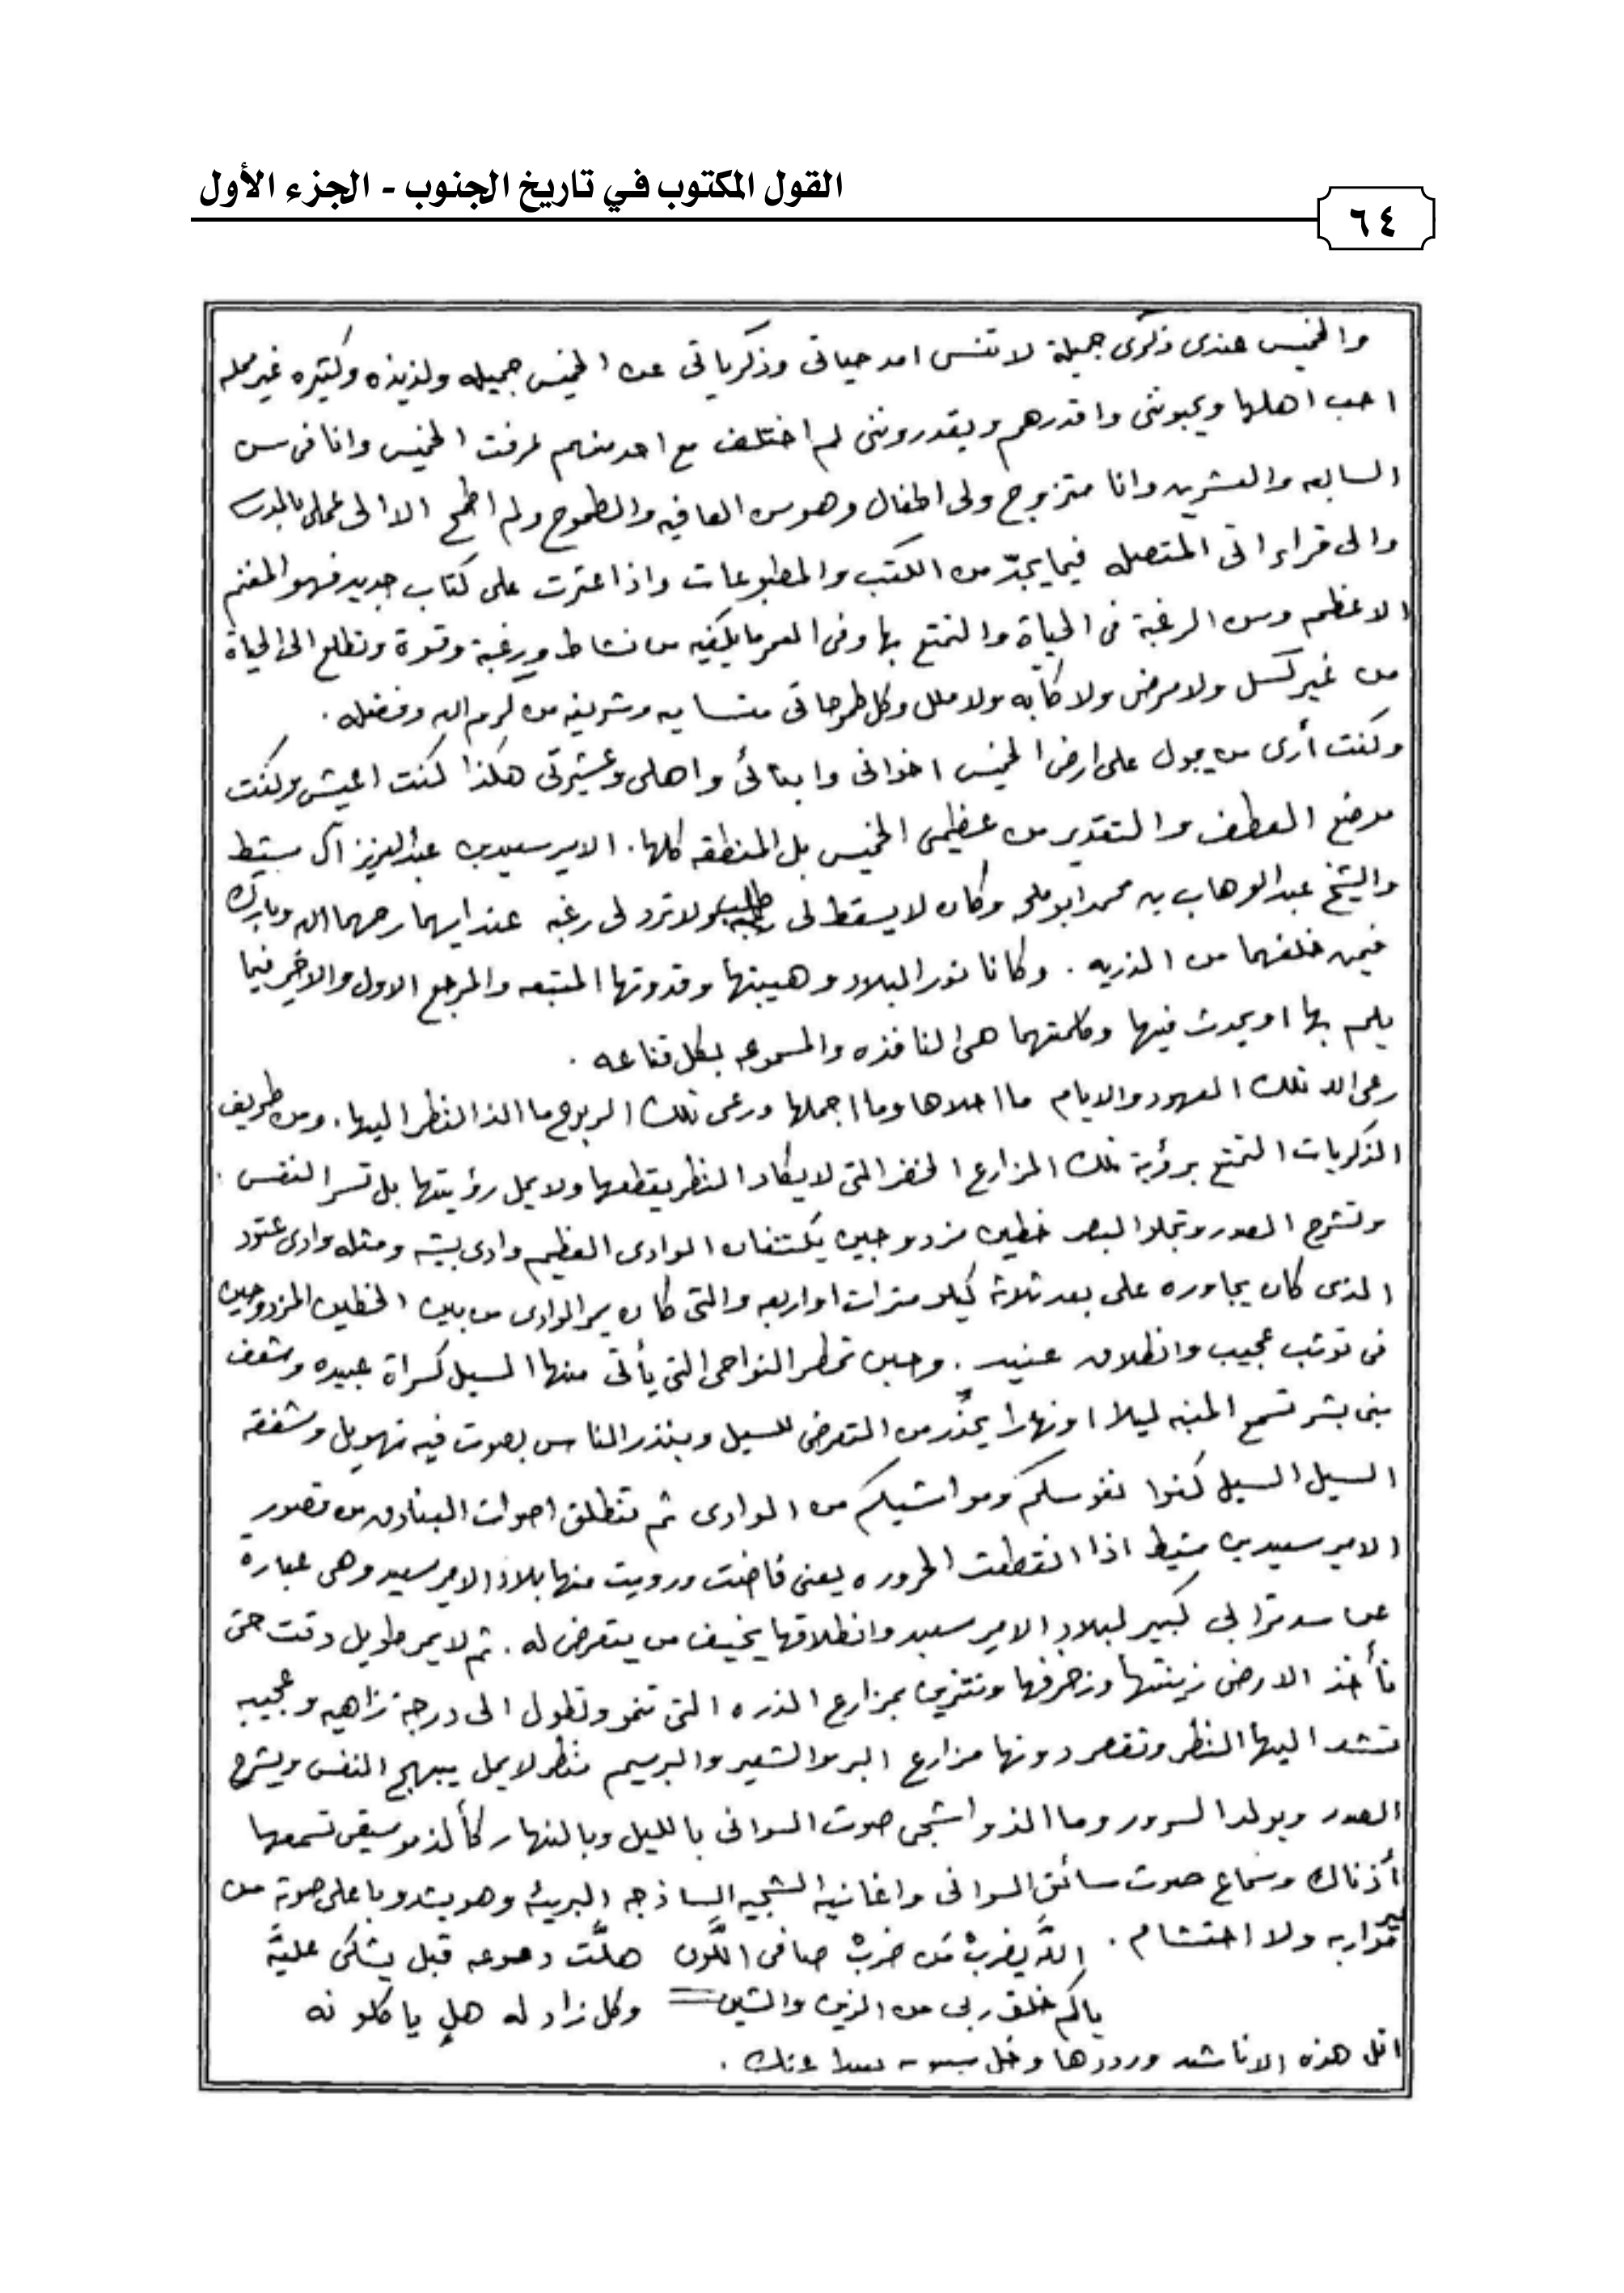 القول المكتوب في تاريخ الجنوب - الجزء الأول
٦٤
والخميس عندى ذكرى جميلة لا تنسى امد حياتى وذكرياتى عن الخميس جميله ولذيذه وكثيره غير مملـه
احب اهلها ويحبوننى واقدرهم ويقدروننى لم اختلف مع احد منهم عرفت الخميس وانا فى سن
السابعه والعشرين وانا متزوج ولى اطفال وهو سن العافيه والطموح ولم اطمح الا الى عملى بالمدرسه
والى قراءاتى المتصله فيما يجدّ من الكتب والمطبوعات واذا عثرت على كتاب جديد فهو المغنم
الاعظم ومن الرغبة فى الحياة والتمتع بها وفى العمر ما يكفيه من نشاط ورغبة وقوة وتطلع الى الحياة
من غير كسل ولا مرض ولا كآبه ولا ملل وكل طموحاتى متساميه وشريفه من كرم الله وفضله .
وكنت أرى من يجول على ارض الخميس اخوانى وابنائى واهلى وعشيرتى هكذا كنت اعيش وكنت
موضع العطف والتقدير من عظيمى الخميس بل المنطقه كلها . الامير سعيد بن عبدالعزيز آل مشيط
والشيخ عبدالوهاب بن محمد ابو ملحه وكان لا يسقط لى طلب ولا ترد لى رغبه عند ايهما رحمهما الله وبارك
فيمن خلفهما من الذريه . وكانا نور البلاد وهيبتها وقدوتها المتبعه والمرجع الاول والاخير فيما
يلم بها او يحدث فيها وكلمتهما هى النافذه والمسموعه بكل قناعه .
رعى الله تلك العهود والايام ما احلاها وما اجملها ورعى تلك الربوع ما الذ النظر اليها . ومن طريف
الذكريات التمتع برؤية تلك المزارع الخضر التى لا يكاد النظر يقطعها ولا يمل رؤيتها بل تسر النفس .
وتشرح الصدور وتجلو البصر خطين مزدوجين يكتنفان الوادى العظيم وادى بيشه ومثله وادى عتود
الذى كان يجاوره على بعد ثلاثة كيلو مترات او اربعه والتى كان يمر الوادى من بين الخطين المزدوجين
فى توثب عجيب وانطلاق عنيد . وحين تمطر النواحى التى يأتى منها السيل كسراة عبيده وشعف
بنى بشر تسمع المنبه ليلا او نهارا يحذّر من التعرض للسيل وينذر الناس بصوت فيه تهويل وشفقه
السيل السيل كفوا نفوسكم ومواشيكم من الوادى ثم تنطلق اصوات البنادق من قصور
الامير سعيد بن مشيط اذا انقطعت الحروره يعنى فاضت ورويت منها بلاد الامير سعيد وهى عبارة
عن سد ترابى كبير لبلاد الامير سعيد وانطلاقها يخيف من يتعرض له . ثم لا يمر طويل وقت حتى
تأخذ الارض زينتها وزخرفها وتتزين بمزارع الذره التى تنمو وتطول الى درجة زاهيه وعجيبه
تشد اليها النظر وتقصر دونها مزارع البر والشعير والبرسيم منظر لا يمل يبهج النفس ويشرح
الصدر ويولد السرور وما الذ واشجى صوت السوانى بالليل وبالنهار كألذ موسيقى تسمعها
أذناك وسماع صوت سائق السوانى واغانيه الشجيه الساذجه البريئه وهو يشدو باعلى صوته من
غير مواربه ولا احتشام . اللّه يضربْ مَن ضربْ صافى اللّون هلّت دموعه قبل يشكى عليّه
ياكم خلق ربى من الزين والشين = وكل زاد له هل ياكلونه
هذه الاناشيد ورددها وخل عنك .